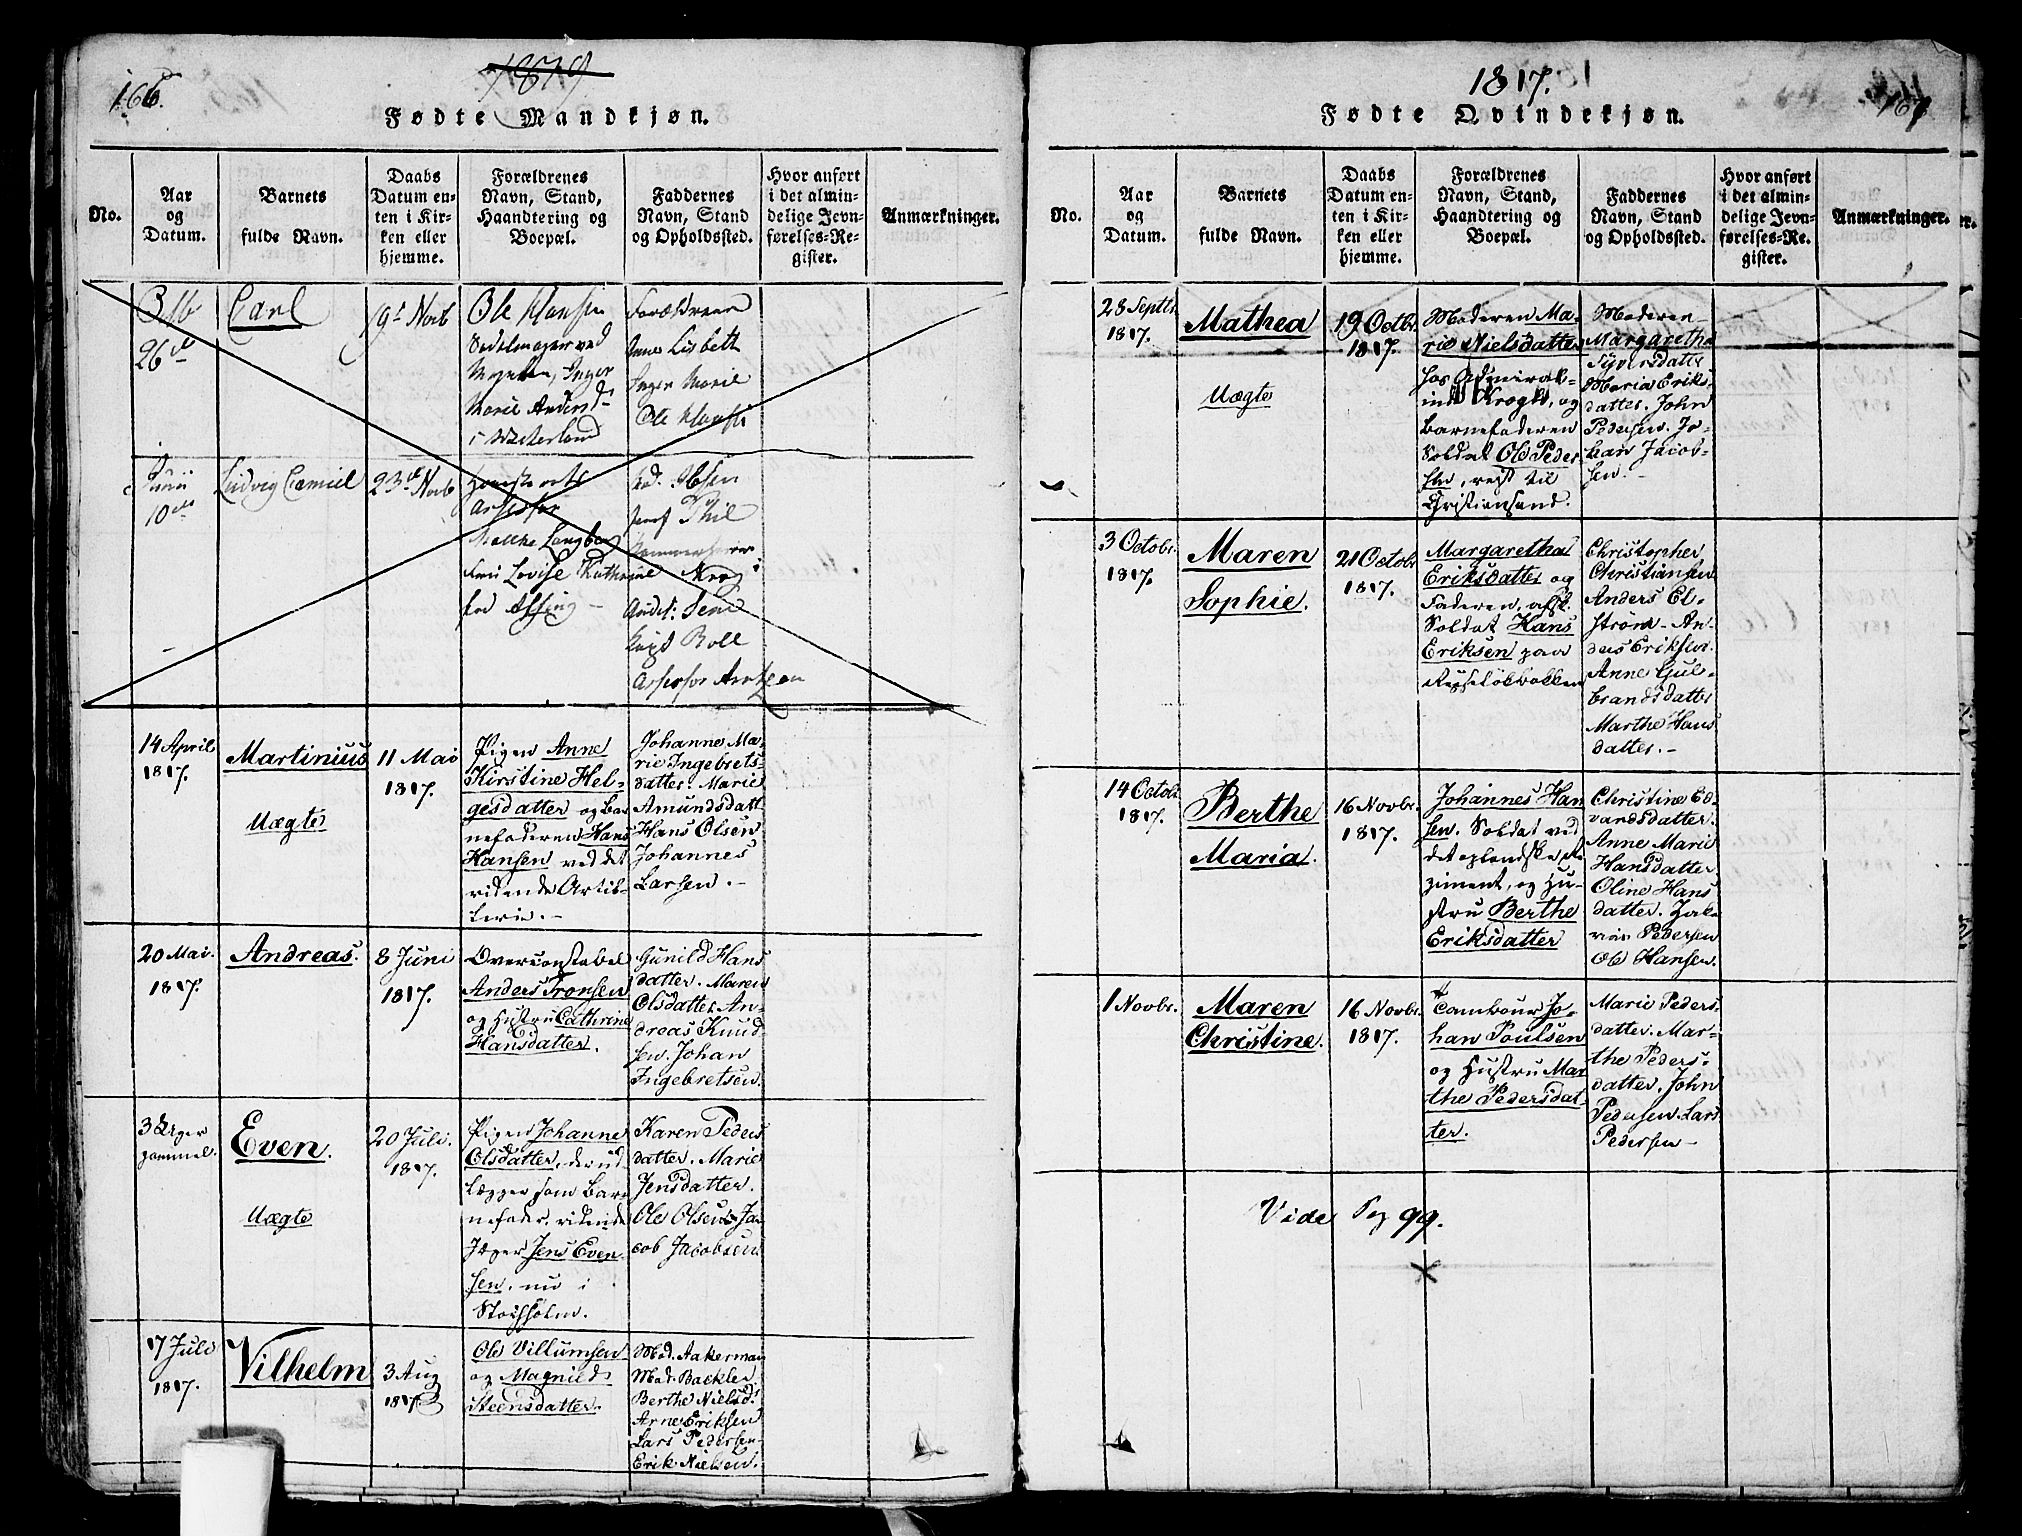 166.
1819
Fødte Mandkjøn.
No.
Aar
og
Datum.
Barnets
fulde Navn.
Daabs
Datum en-
ten i Kir-
ken eller
hjemme.
Forældrenes
Navn, Stand,
Haandtering og
Boepæl.
Faddernes
Navn, Stand
og Opholdssted.
Hvor anført
i det almin-
delige Jevn-
førelses-Re-
gister.
Anmærkninger.
26de
Carl
19de Novb
Ole Hansen
Sadelmager ved
Inger
Marie Andersd
Forældrene
Lisbett
Inger Marie
Ole Hansen
Junii
10de
Ludvig Camiel
23de Novb
Assessor
Malthe Langberg
Lovise Kathrine
fød Assing
Mad. Ibsen
Thil
Krog
Roll
Assessor Arntzen
14 April
1817.
Martinius
Uægte
11 Mai
1817.
Pigen Anne
Kirstine Hel-
gesdatter og bar
nefaderen Hans
Hansen ved det
ridende Artil-
lerie.-
Johanne Ma-
rie Ingebrets-
datter. Marie
Amundsdatt
Hans Olsen
Johannes
Larsen.-
20 Mai.
1817.
Andreas.
8 Juni
1817.
Overconstabel
Anders Tronsen
og Hustru Cathrine
Hansdatter.
Gunild Hans
datter. Maren
Olsdatter An-
dreas Knud-
sen. Johan
Ingebretsen.
3 Uger
gammel.
Even.
Uægte
20 Juli.
1817.
Pigen Johanne
Olsdatter, der ud-
lægger som Bar
nefader, ridende
Jæger Jens Even-
sen, nu i
Stockholm.
Karen Peders
datter. Marie
Jensdatter.
Ole Olsen Ja-
cob Jacobsen
17 Juli
1817.
Vilhelm
3 Aug
1817
Ole Villumsen
og Magnild
Steensdatter.
Mad. Aakerman
Mad. Backler
Berthe Nielsd.
Arne Eriksen
Lars Pedersen-
Erik Nielsen.
1817.
Fødte Qvindekjøn.
167
No.
Aar
og
Datum.
Barnets
fulde Navn.
Daabs
Datum en-
ten i Kir-
ken eller
hjemme.
Forældrenes
Navn, Stand,
Haandtering og
Boepæl.
Faddernes
Navn, Stand
og Opholdssted.
Hvor anført
i det almin-
delige Jevn-
førelses-Re-
gister.
Anmærkninger.
28 Septbr.
1817.
Mathea
Uægte
19 Octbr.
1817.
Moderen Ma-
rie Nielsdatter
hos Admiral-
inde Krogh, og
Barnefaderen
Soldat Ole Peder
sen, rejst til
Christiansand.
Moderen
Margaretha
Syversdatter
Maria Eriks-
datter. John
Pedersen. Jo-
han Jacob-
sen.-
3 Octobr.
1817.
Maren
Sophie.
21 Octobr
1817.
Margaretha
Eriksdatter og
Faderen, afsk.
Soldat Hans
Eriksen paa
Christopher
Christiansen
Anders El-
strøm- An-
ders Eriksen.
Anne Gul-
brandsdatter
Marthe Hans
datter.-
14 Octobr
1817.
Berthe
Maria.
16 Novbr.
1817.
Johannes Han
sen. Soldat ved
det oplandske Re
giment, og Hu-
stru Berthe
Eriksdatter
Christine Ed-
vardsdatter.
Anne Marie
Hansdatter
Oline Hans
datter. Hal-
vor Pedersen
Ole Hansen.
1 Novbr.
Maren
Christine.
16 Novbr.
1817.
Tambour Jo-
han Poulsen
og Hustru Mar
the Pedersdat-
ter.
Marie Peders
datter. Mar-
the Peders-
datter. John
Pedersen. Lars
Pedersen-
Vide Pag 99.